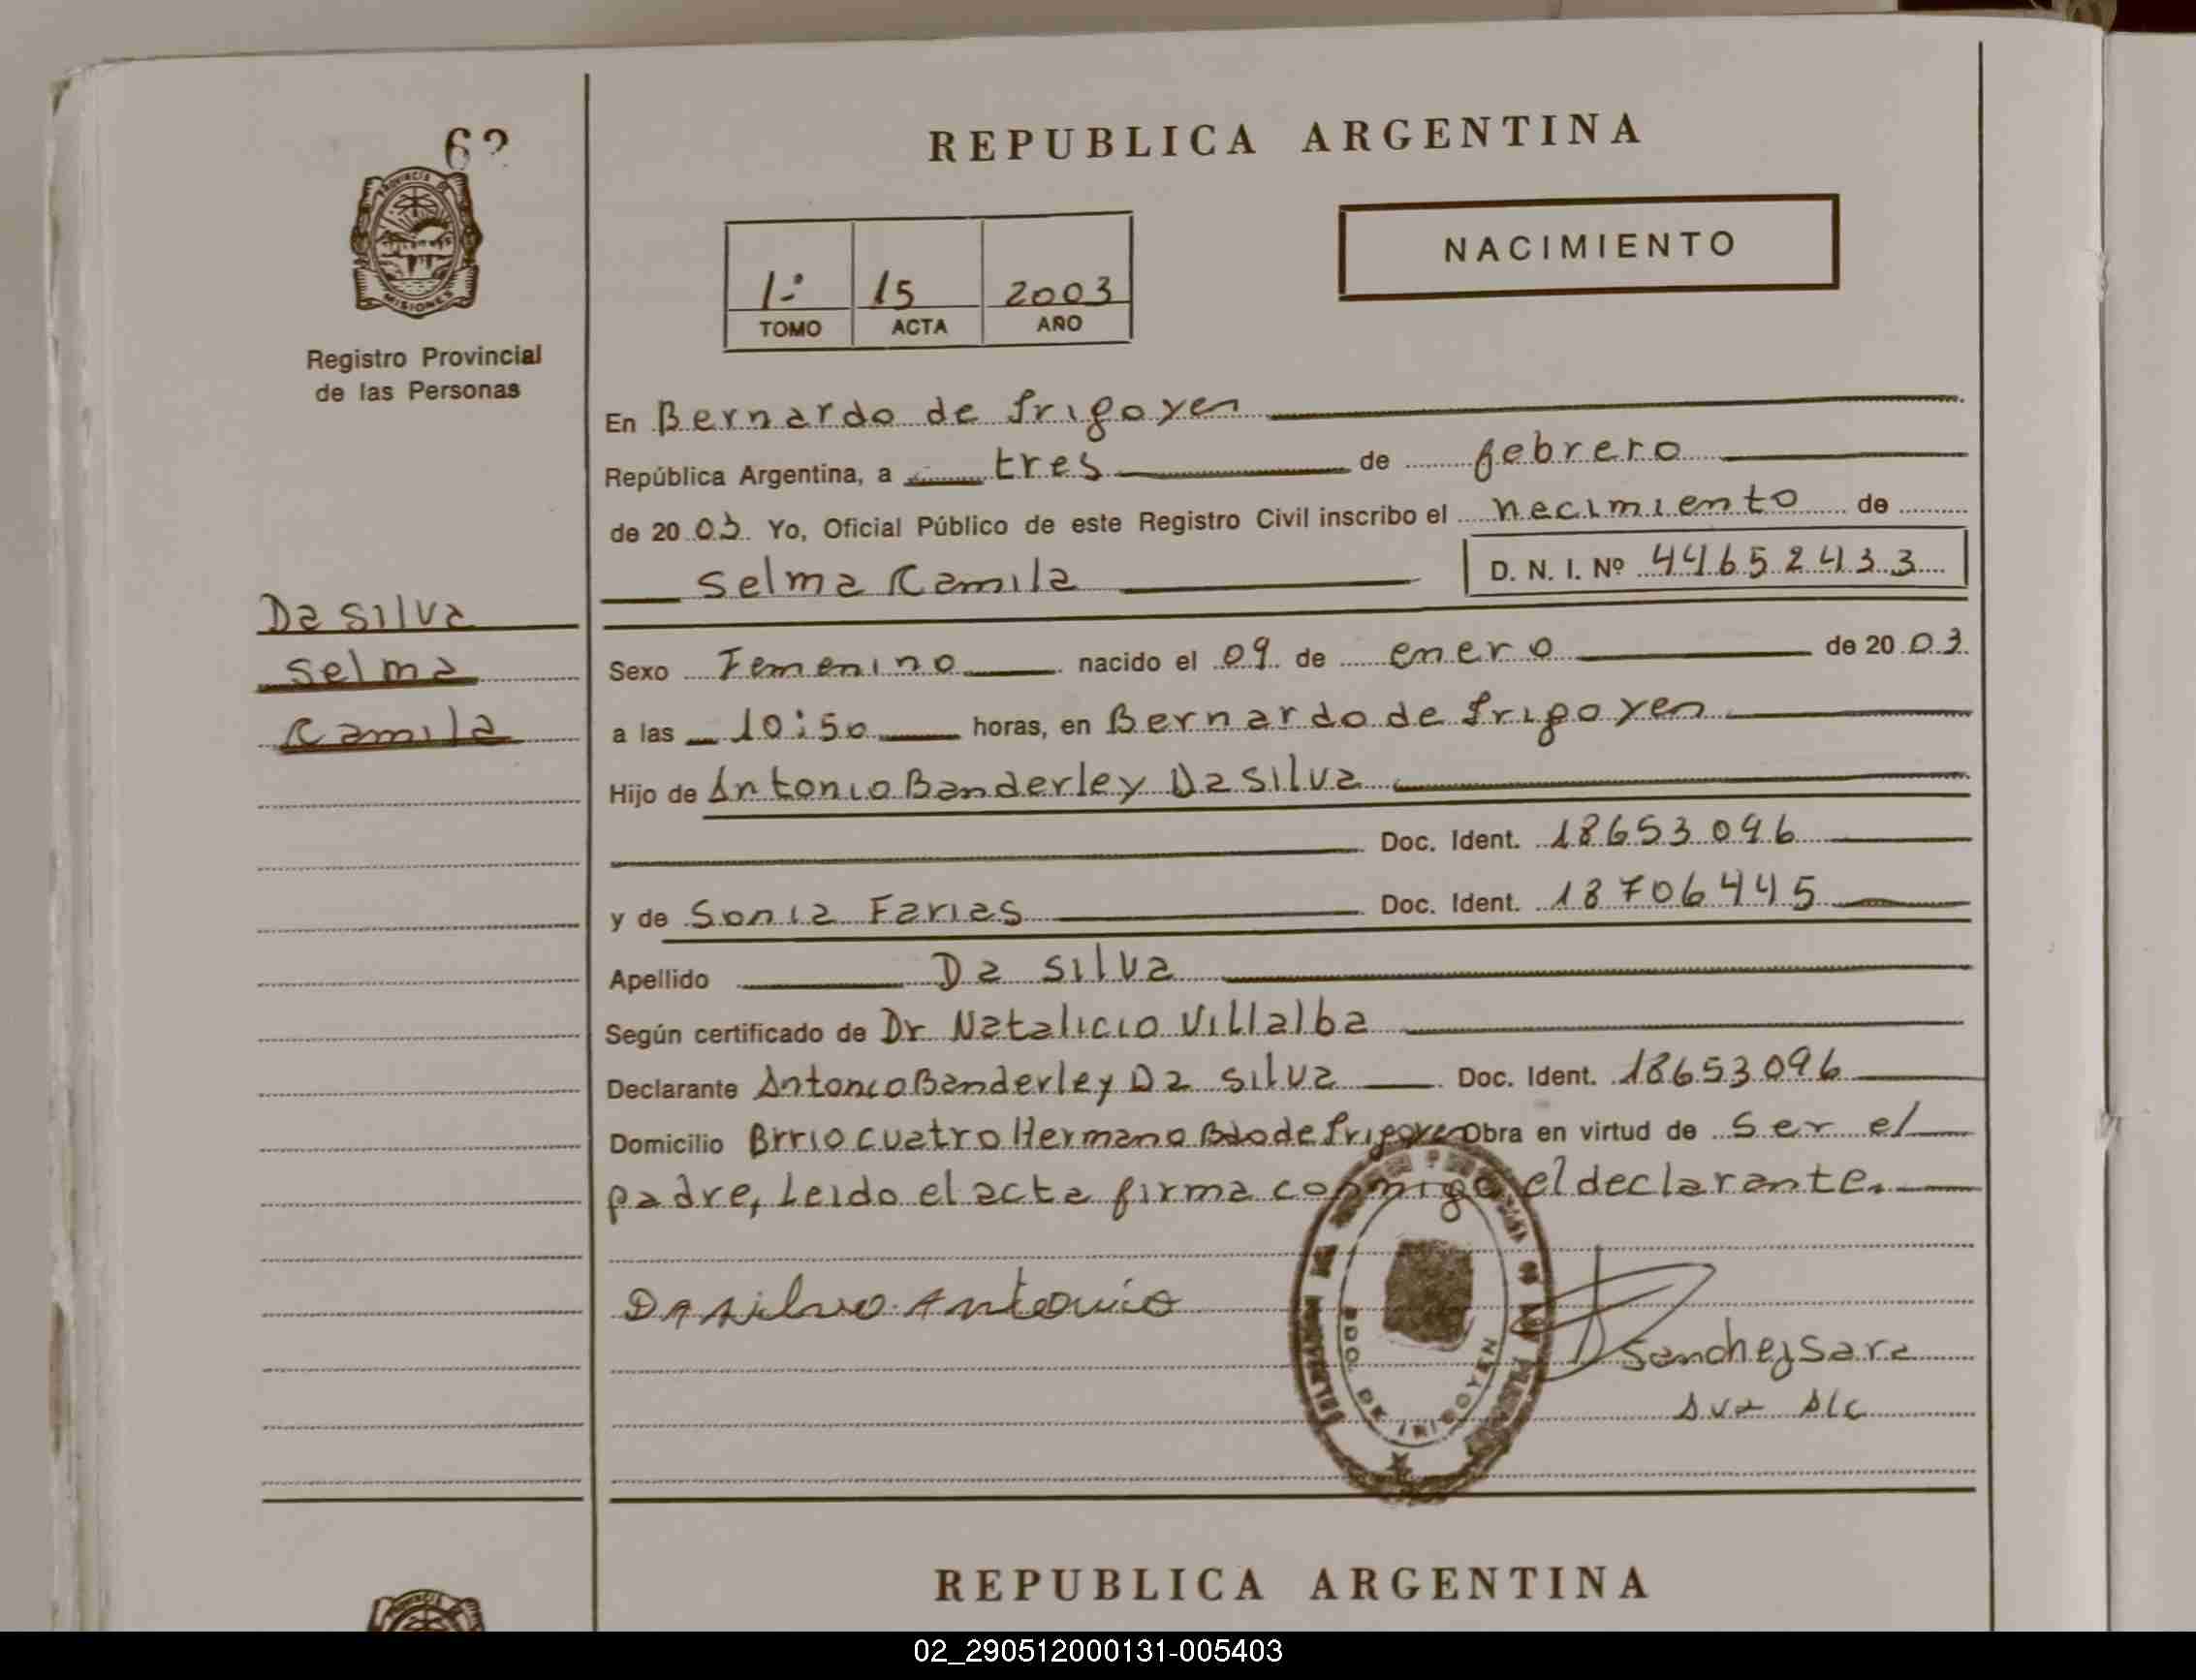 62
PROVINCIA DE
MISIONES
Registro Provincial
de las Personas
Da silva
Selma
Kamila
REPUBLICA ARGENTINA
NACIMIENTO
1-º 15 2003
TOMO ACTA AÑO
En Bernardo de Irigoyen
República Argentina, a tres de febrero
de 20 03 Yo, Oficial Público de este Registro Civil inscribo el nacimiento de
Selma Kamila D. N. I. Nº 44652433
Sexo Femenino nacido el 09 de enero de 20 03
a las 10:50 horas, en Bernardo de Irigoyen
Hijo de Antonio Banderley Da silva
Doc. Ident. 18653096
y de Sonia Farias Doc. Ident. 18706445
Apellido Da silva
Según certificado de Dr Natalicio Villalba
Declarante Antonio Banderley Da silva Doc. Ident. 18653096
Domicilio Brrio cuatro Hermano Bdo de Irigoyen Obra en virtud de Ser el
padre, Leido el acta firma conmigo el declarante.
Da silva Antonio
BDO. DE IRIGOYEN
Sanchez Sara
REPUBLICA ARGENTINA
02_290512000131-005403